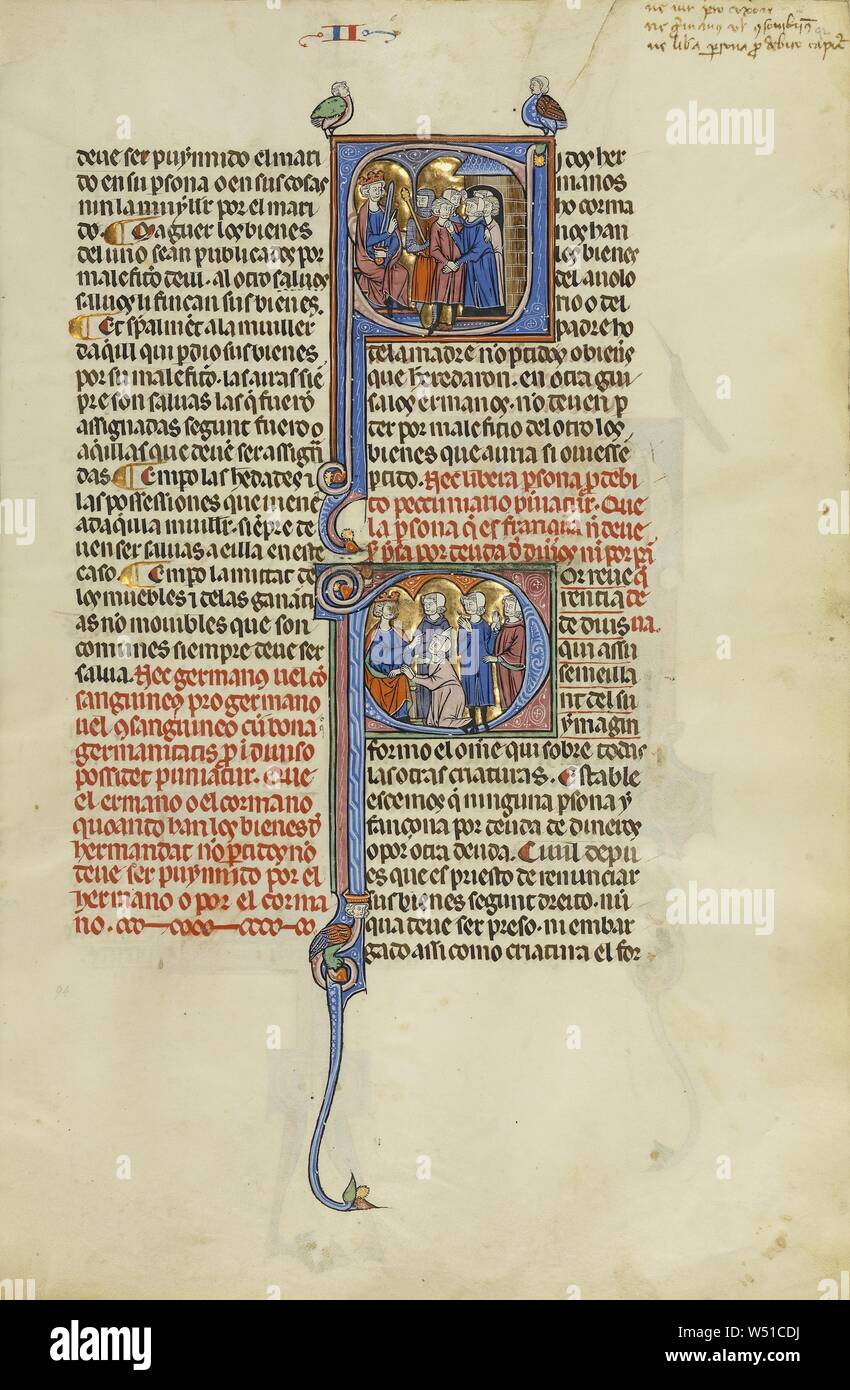 II
ne vir pro uxori
ne liba psona p debito capiat
deue ser puynnido el mari
do en su psona o en sus cosas
nin la muyller por el mari
do. Maguer los bienes
del uno sean publicados por
malefito deill. al otro saluos
saluos li fincan sus bienes.
Et spalment a la muiller
daqill qui pdio sus bienes
por su malefito. las arras siē
pre son saluas las q̄ fuerō
assignadas segunt fuero o
aqillas que deuē ser assign̄
das. Empo las hedades i
las possessiones que uienē
ad aqilla muillr. siēpre de
uen ser saluas a eilla en este
caso. Empo la mitat de
los muebles i de las gananci
as nō mouibles que son
comunes siempre deue ser
salua. Nec germanus uel cō
sanguineus pro germano
uel 9sanguineo cū bona
germanitatis p idiuiso
possidet puniatur. Que
el ermano o el cormano
quando han los bienes d̄
hermandat nō ptidos nō
deue ser puynnido por el
hermano o por el corma
no.
i dos her
manos
ho corma
nos han
los bienes
del auolo
rio o del
padre ho
de la madre nō ptidos o bienes
que heredaron. en otra gui
sa los ermanos. nō deuen p
der por maleficio del otro los
bienes que auria si ouiesse
ptido. Nec libera psona p debi
to peccuniario puniatur. Que
la psona q̄ es franqua n̄ deue
por deuda d̄ dineros ni por
Or reue
rentia de
de diuis na.
qui assu
semeilla
nt del su
ymagin
formo el ome qui sobre todas
las otras criaturas. Estable
escemos q̄ ninguna psona y
fançona por deuda de dineros
o por otra deuda. Ciuil depu
es que es priesto de renunciar
sus bienes segunt dreito. nū
qua deue ser preso. ni embar
gado assi como criatura el for
alamy
Image ID: W51CDJ
www.alamy.com